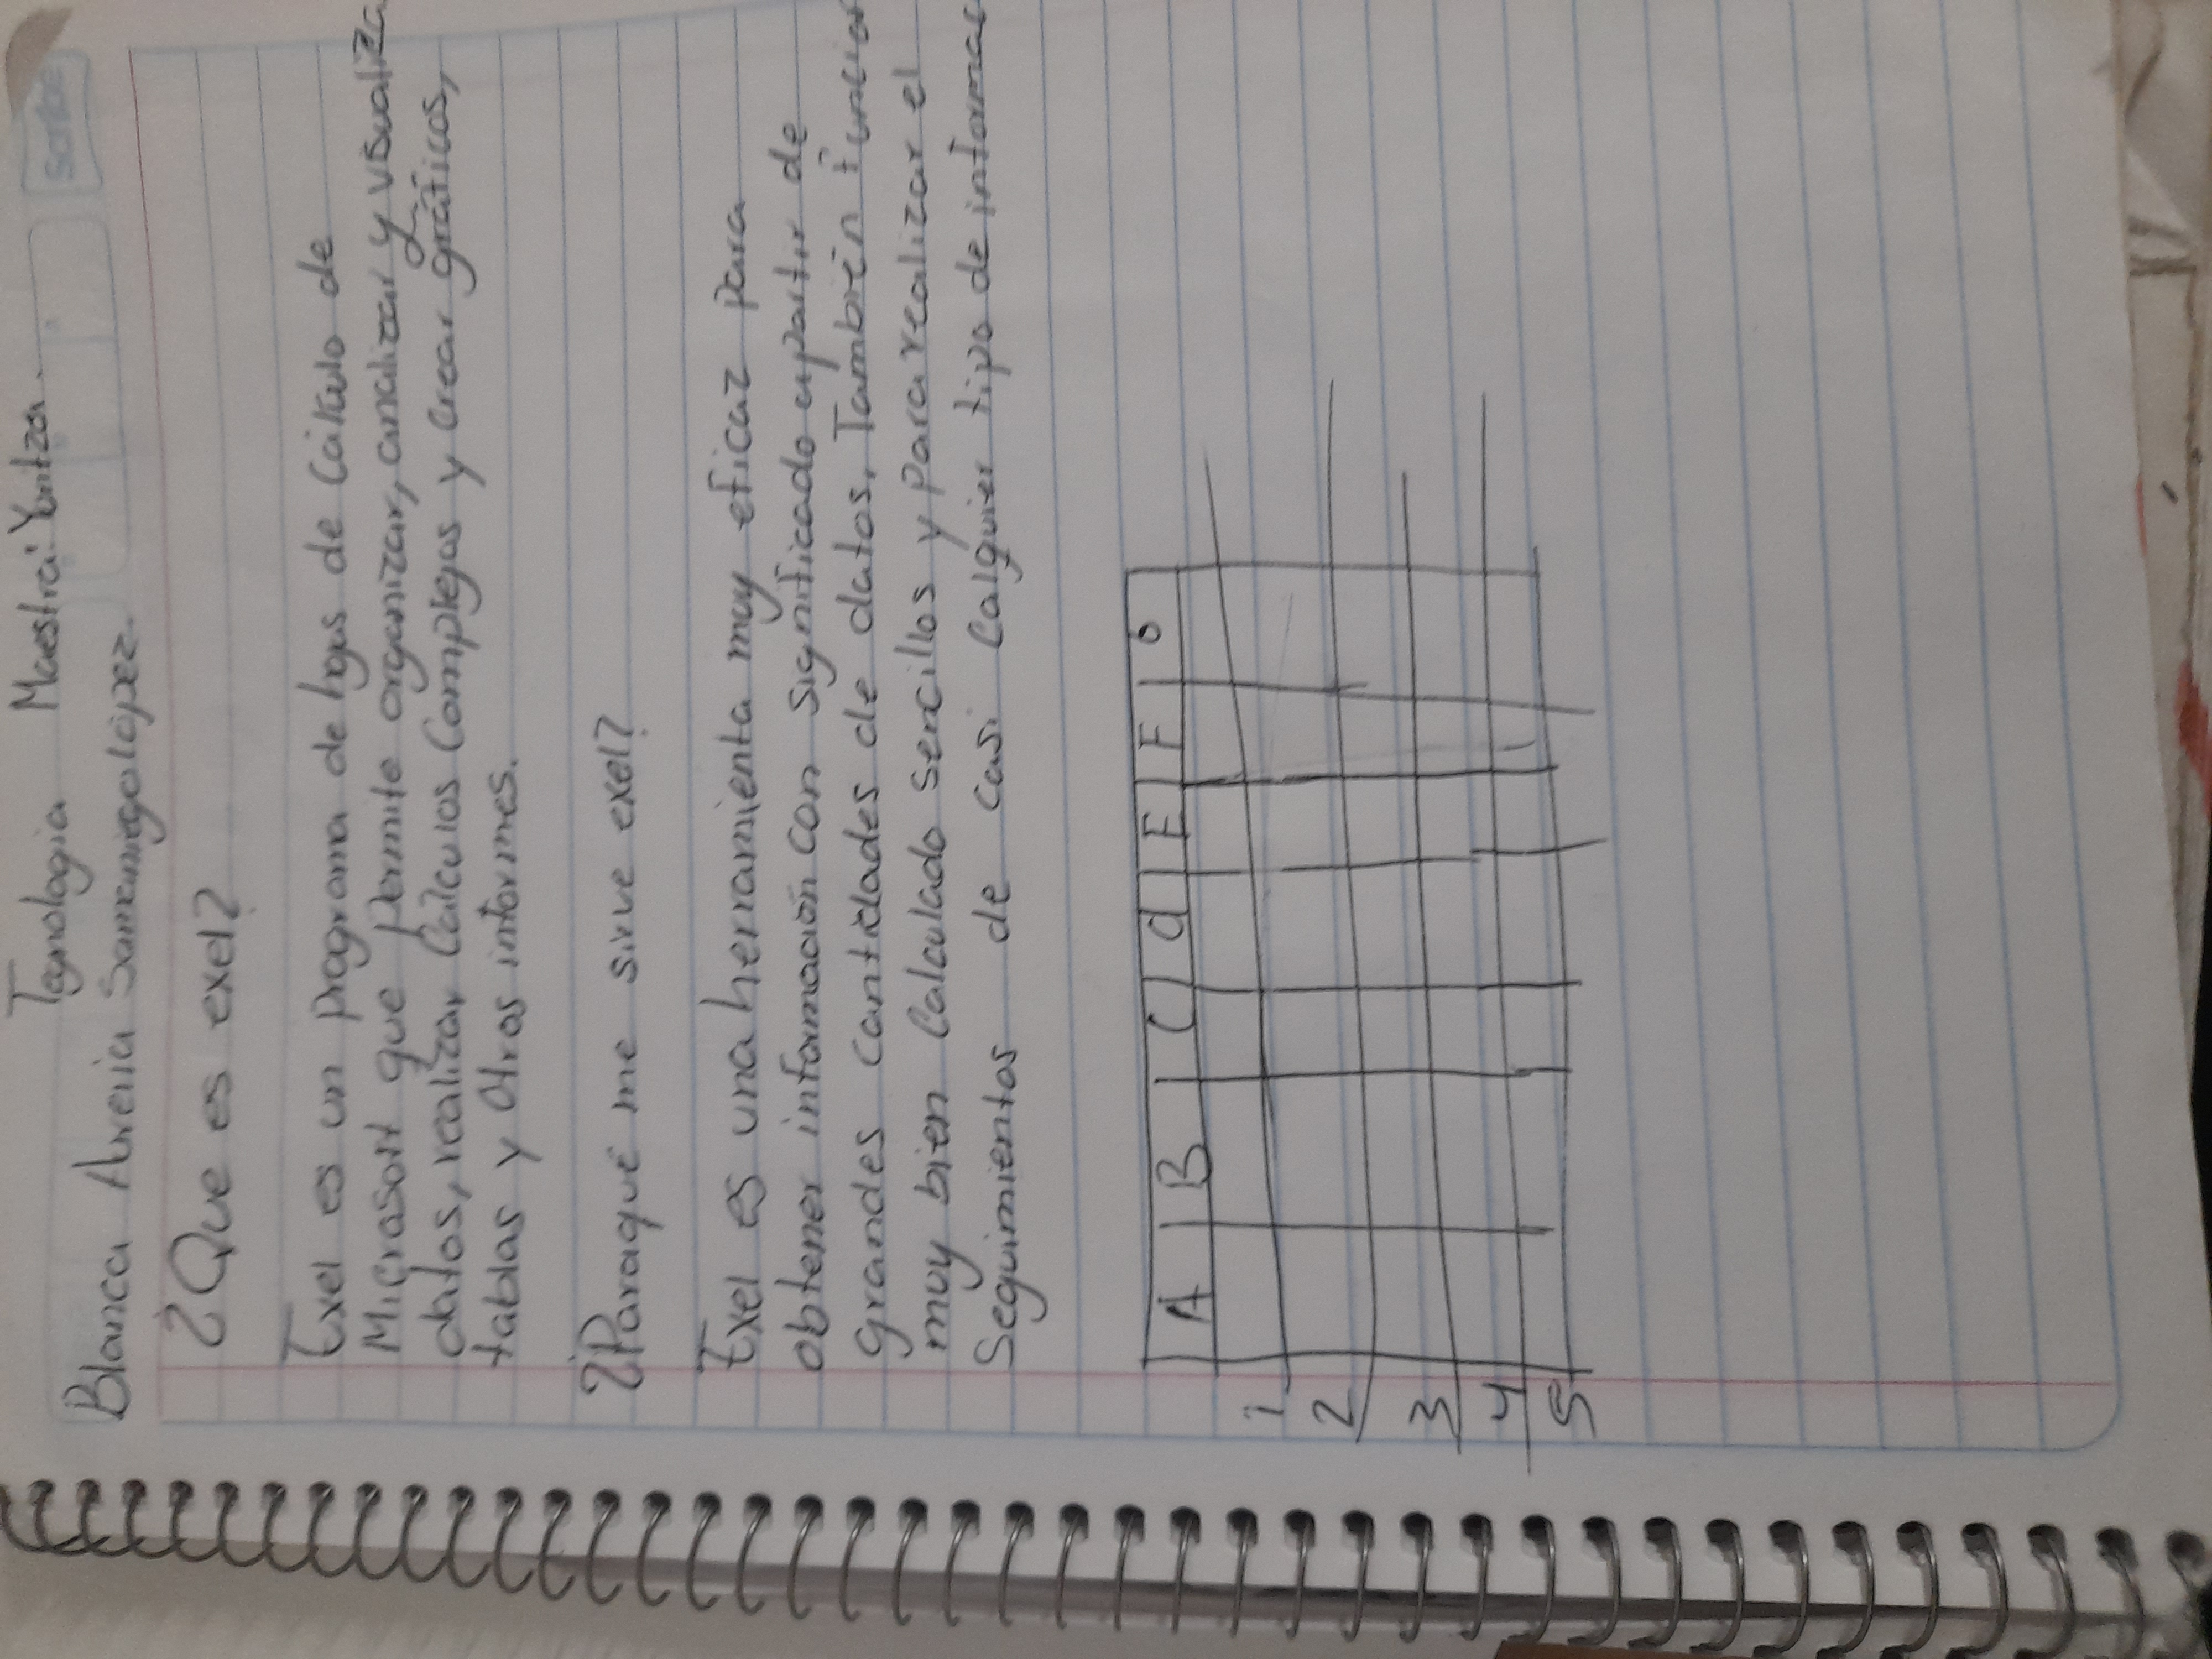 Tegnologia Maestra: Yaritza.
Blanca Azenia Samaniego López.
¿Que es exel?
Exel es un programa de hojas de Cálculo de
Microsoft que permite organizar, analizar y visualiza
datos, realizar Cálculos Complejos y Crear gráficos,
tablas y Otros informes.
¿Paraqué me sirve exel?
Exel es una herramienta muy eficaz para
obtener información con significado apartir de
grandes cantidades de datos, También funcion
muy bien Calculado sencillos y para realizar el
Seguimientos de casi Calquier tipo de informac
A B C d E F G
1
2
3
4
5